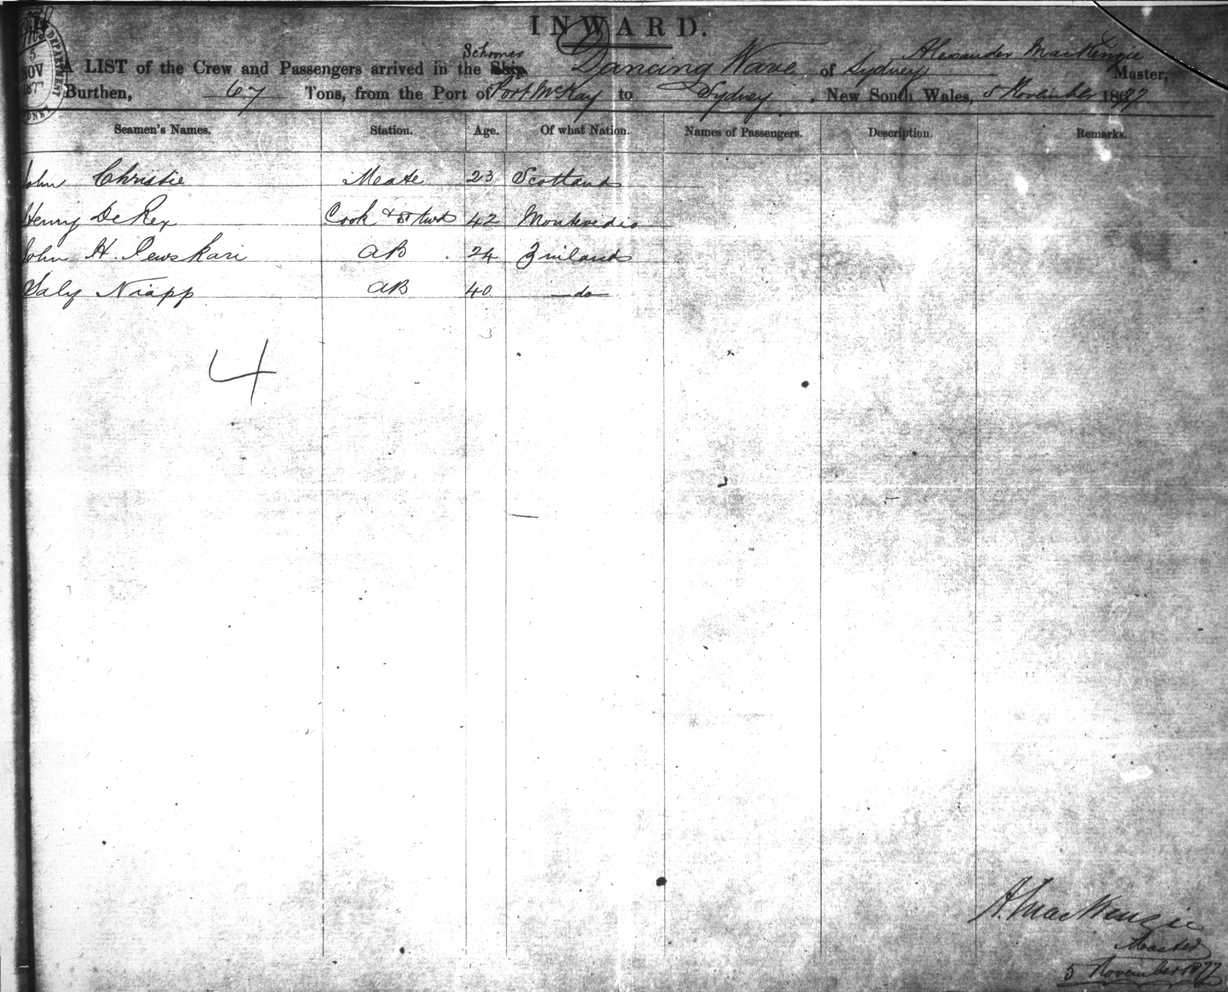 INWARD.
A LIST of the Crew and Passengers arrived in the Ship Schooner Dancing Wave of Sydney Alexander MacKenzie Master,
Burthen, 67 Tons, from the Port of Port McKay to Sydney, New South Wales, 5 November 1877
Seamen's Names. Station. Age. Of what Nation. Names of Passengers. Description. Remarks.
John Christie Mate 23 Scotland
Henry De Rex Cook & Stwd 42 Montevedio
John H. 24 AB Finland
Niapp AB 40 do
4
A. MacKenzie
Master
5 November 1877